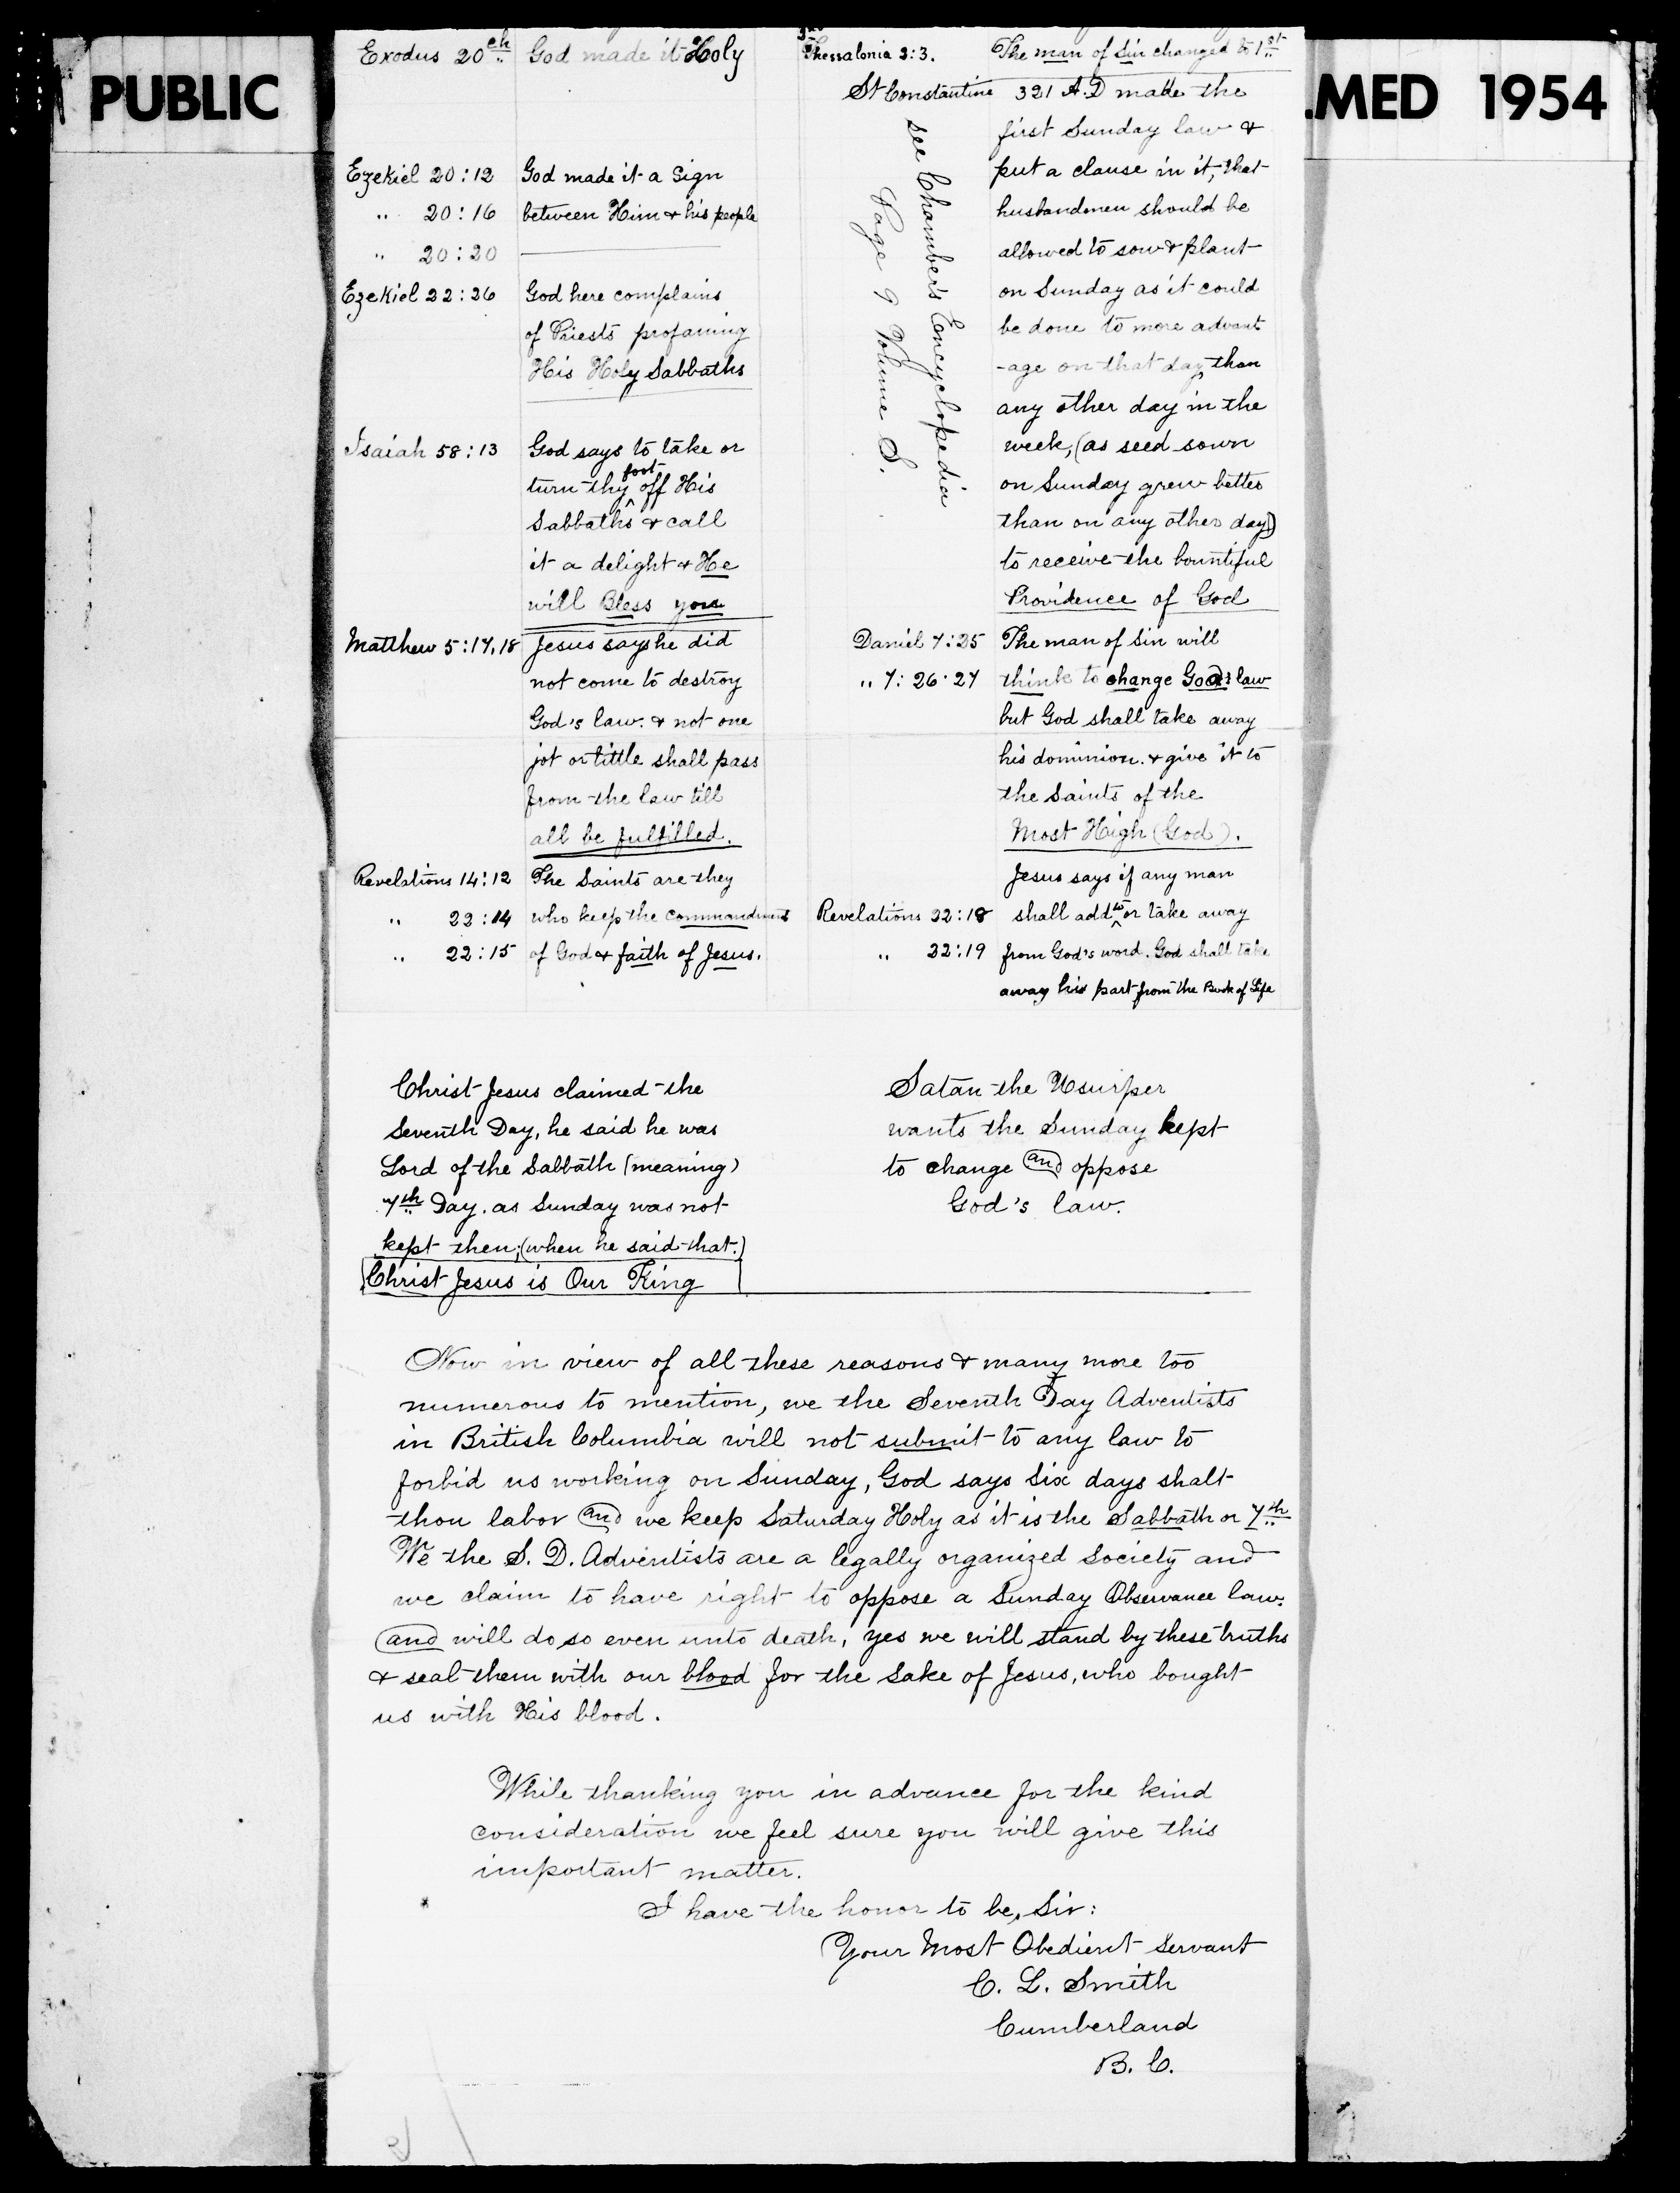 PUBLIC
.MED 1954
Exodus 20th God made it Holy
Ezekiel 20:12 God made it a Sign
" 20:16 between Him & his people
" 20:20
Ezekiel 22:26 God here complains
of Priests profaning
His Holy Sabbaths
Isaiah 58:13 God says to take or
turn thy foot off His
Sabbaths & call
it a delight & He
will Bless you
Matthew 5:17,18 Jesus says he did
not come to destroy
God's law. & not one
jot or tittle shall pass
from the law till
all be fulfilled.
Revelations 14:12 The Saints are they
" 22:14 who keep the commandments
" 22:15 of God & faith of Jesus.
Thessalonia 2:3. The man of Sin changed to 1st
St Constantine 321 A.D made the
first Sunday law &
put a clause in it, that
husbandmen should be
allowed to sow & plant
on Sunday as it could
be done to more advant
-age on that day, than
any other day in the
week, (as seed sown
on Sunday grew better
than on any other day)
to receive the bountiful
Providence of God
see Chambers Encyclopedia
Page 9 Volume S.
Daniel 7:25 The man of Sin will
" 7:26.27 think to change God's law
but God shall take away
his dominion. & give it to
the Saints of the
Most High (God).
Jesus says if any man
Revelations 22:18 shall add to or take away
" 22:19 from God's word. God shall take
away his part from the Book of Life
Christ Jesus claimed the
Seventh Day, he said he was
Lord of the Sabbath (meaning)
7th Day. as Sunday was not
kept then; (when he said that.)
Christ Jesus is Our King
Satan the Usurper
wants the Sunday kept
to change and oppose
God's law.
Now in view of all these reasons & many more too
numerous to mention, we the Seventh Day Adventists
in British Columbia will not submit to any law to
forbid us working on Sunday, God says Six days shalt
thou labor and we keep Saturday Holy as it is the Sabbath or 7th
We the S. D. Adventists are a legally organized Society and
we claim to have right to oppose a Sunday Observance law.
and will do so even unto death, yes we will stand by these truths
& seal them with our blood for the sake of Jesus, who bought
us with His blood.
While thanking you in advance for the kind
consideration we feel sure you will give this
important matter.
I have the honor to be, Sir:
Your Most Obedient Servant
C. L. Smith
Cumberland
B. C.